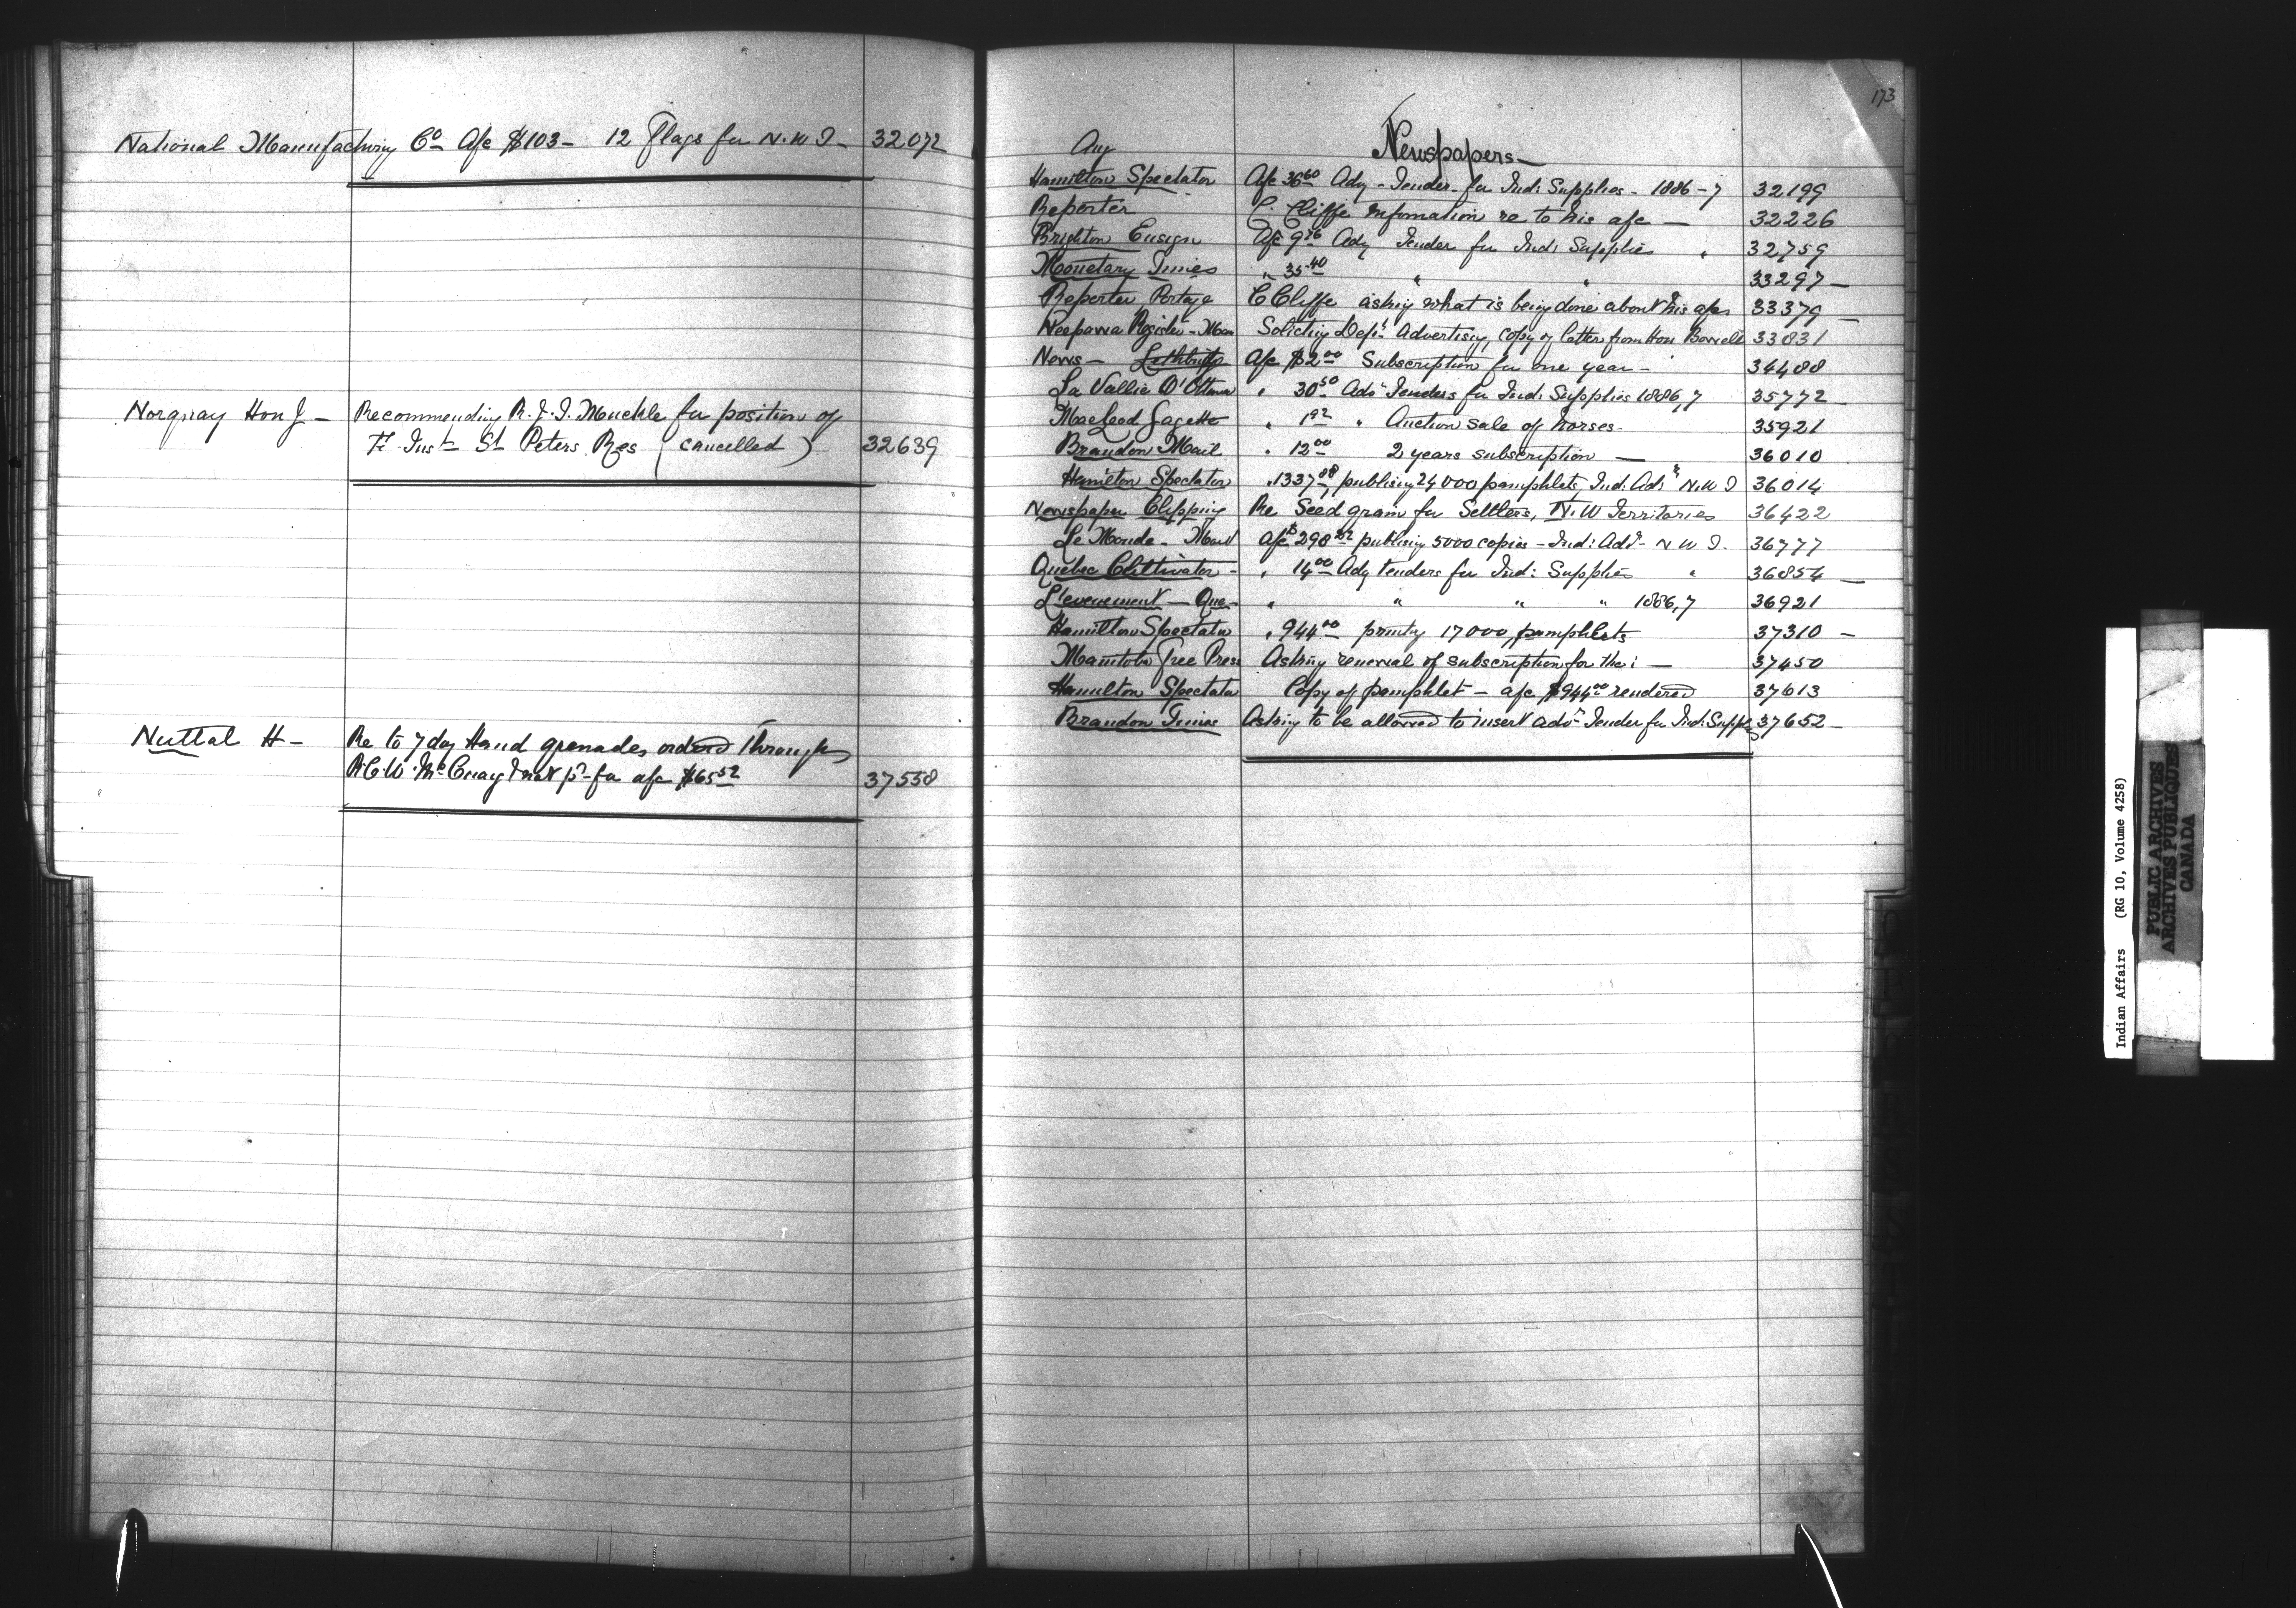 National Manufacturing Co A/c $103- 12 Flags for N.W.T- 32072
Norquay Hon J- Recommending R.J.I. Muckle for position of
F. Inst St Peters Res (cancelled) 32639
Nuttal H- Re to 7 doz Hand grenades ordered through
R.C.W. McCuay & not pd for a/c $65 52 37558
173
Newspapers-
Hamilton Spectator A/c 36 60 Adv - Tender for Ind: Supplies - 1886-7 32199
Reporter C. Cliffe Information re to his a/c - 32226
Brighton Ensign A/c 9 76 Adv Tender for Ind: Supplies " 32759
Monetary Times " 35 40 " " 33297-
Reporter Portage C Cliffe asking what is being done about his a/cs 33379-
Neepawa Register - Man Soliciting Dept Advertising, copy of letter from Hon Bowell 33831
News - Lethbridge A/c $2 00 Subscription for one year - 34488
La Vallie D'Ottawa " 30 50 Adv Tenders for Ind: Supplies 1886,7 35772
MacLeod Gazette " 1 92 " Auction sale of horses- 35921
Brandon Mail " 12 00 2 years subscription - 36010
Hamilton Spectator " 1337 88 publising 24000 pamphlets, Ind: Adn N.W T 36014
Newspaper Clipping Re Seed grain for Settlers, N.W Territories 36422
Le Monde - Mont A/c $298 publising 5000 copies - Ind: Adn - N W T. 36777
Quebec Cultivator - " 14 00 Adv tenders for Ind: Supplies " 36854-
L'evenement - Que- " " " " 1886,7 36921
Hamilton Spectator " 944 00 printing 17000 pamphlets 37310-
Manitoba Free Press Asking renewal of subscription for the: - 37450
Hamilton Spectator Copy of pamphlet - a/c $944 00 rendered 37613
Brandon Times Asking to be allowed to insert advt Tender for Ind: Supplies 37652-
Indian Affairs (RG 10, Volume 4258)
PUBLIC ARCHIVES
ARCHIVES PUBLIQUES
CANADA